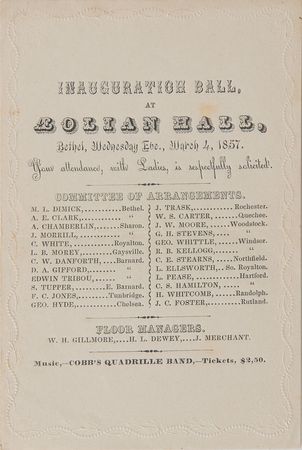 INAUGURATION BALL,
AT
ÆOLIAN HALL,
Bethel, Wednesday Eve., March 4, 1857.
Your attendance, with Ladies, is respectfully solicited.
COMMITTEE OF ARRANGEMENTS.
M. L. DIMICK,........Bethel.
A. E. CLARK,.......... "
A. CHAMBERLIN,......Sharon.
J. MORRILL,........... "
C. WHITE,........Royalton.
L. B. MOREY,......Gaysville.
C. W. DANFORTH,....Barnard.
D. A. GIFFORD,....... "
EDWIN TRIBOU,..... "
S. TUPPER,......E. Barnard.
F. C. JONES,......Tunbridge.
GEO. HYDE,........Chelsea.
J. TRASK,..........Rochester.
W. S. CARTER,......Quechee.
J. W. MOORE,....Woodstock.
G. H. STEVENS,..... "
GEO. WHITTLE,....Windsor.
R. B. KELLOGG,...... "
C. E. STEARNS,...Northfield.
L. ELLSWORTH,..So. Royalton.
L. PEASE,..........Hartford.
C. S. HAMILTON,.... "
H. WHITCOMB,...Randolph.
J. C. FOSTER,......Rutland.
FLOOR MANAGERS.
W. H. GILLMORE,....H. L. DEWEY,....J. MERCHANT.
Music,—COBB'S QUADRILLE BAND,—Tickets, $2,50.